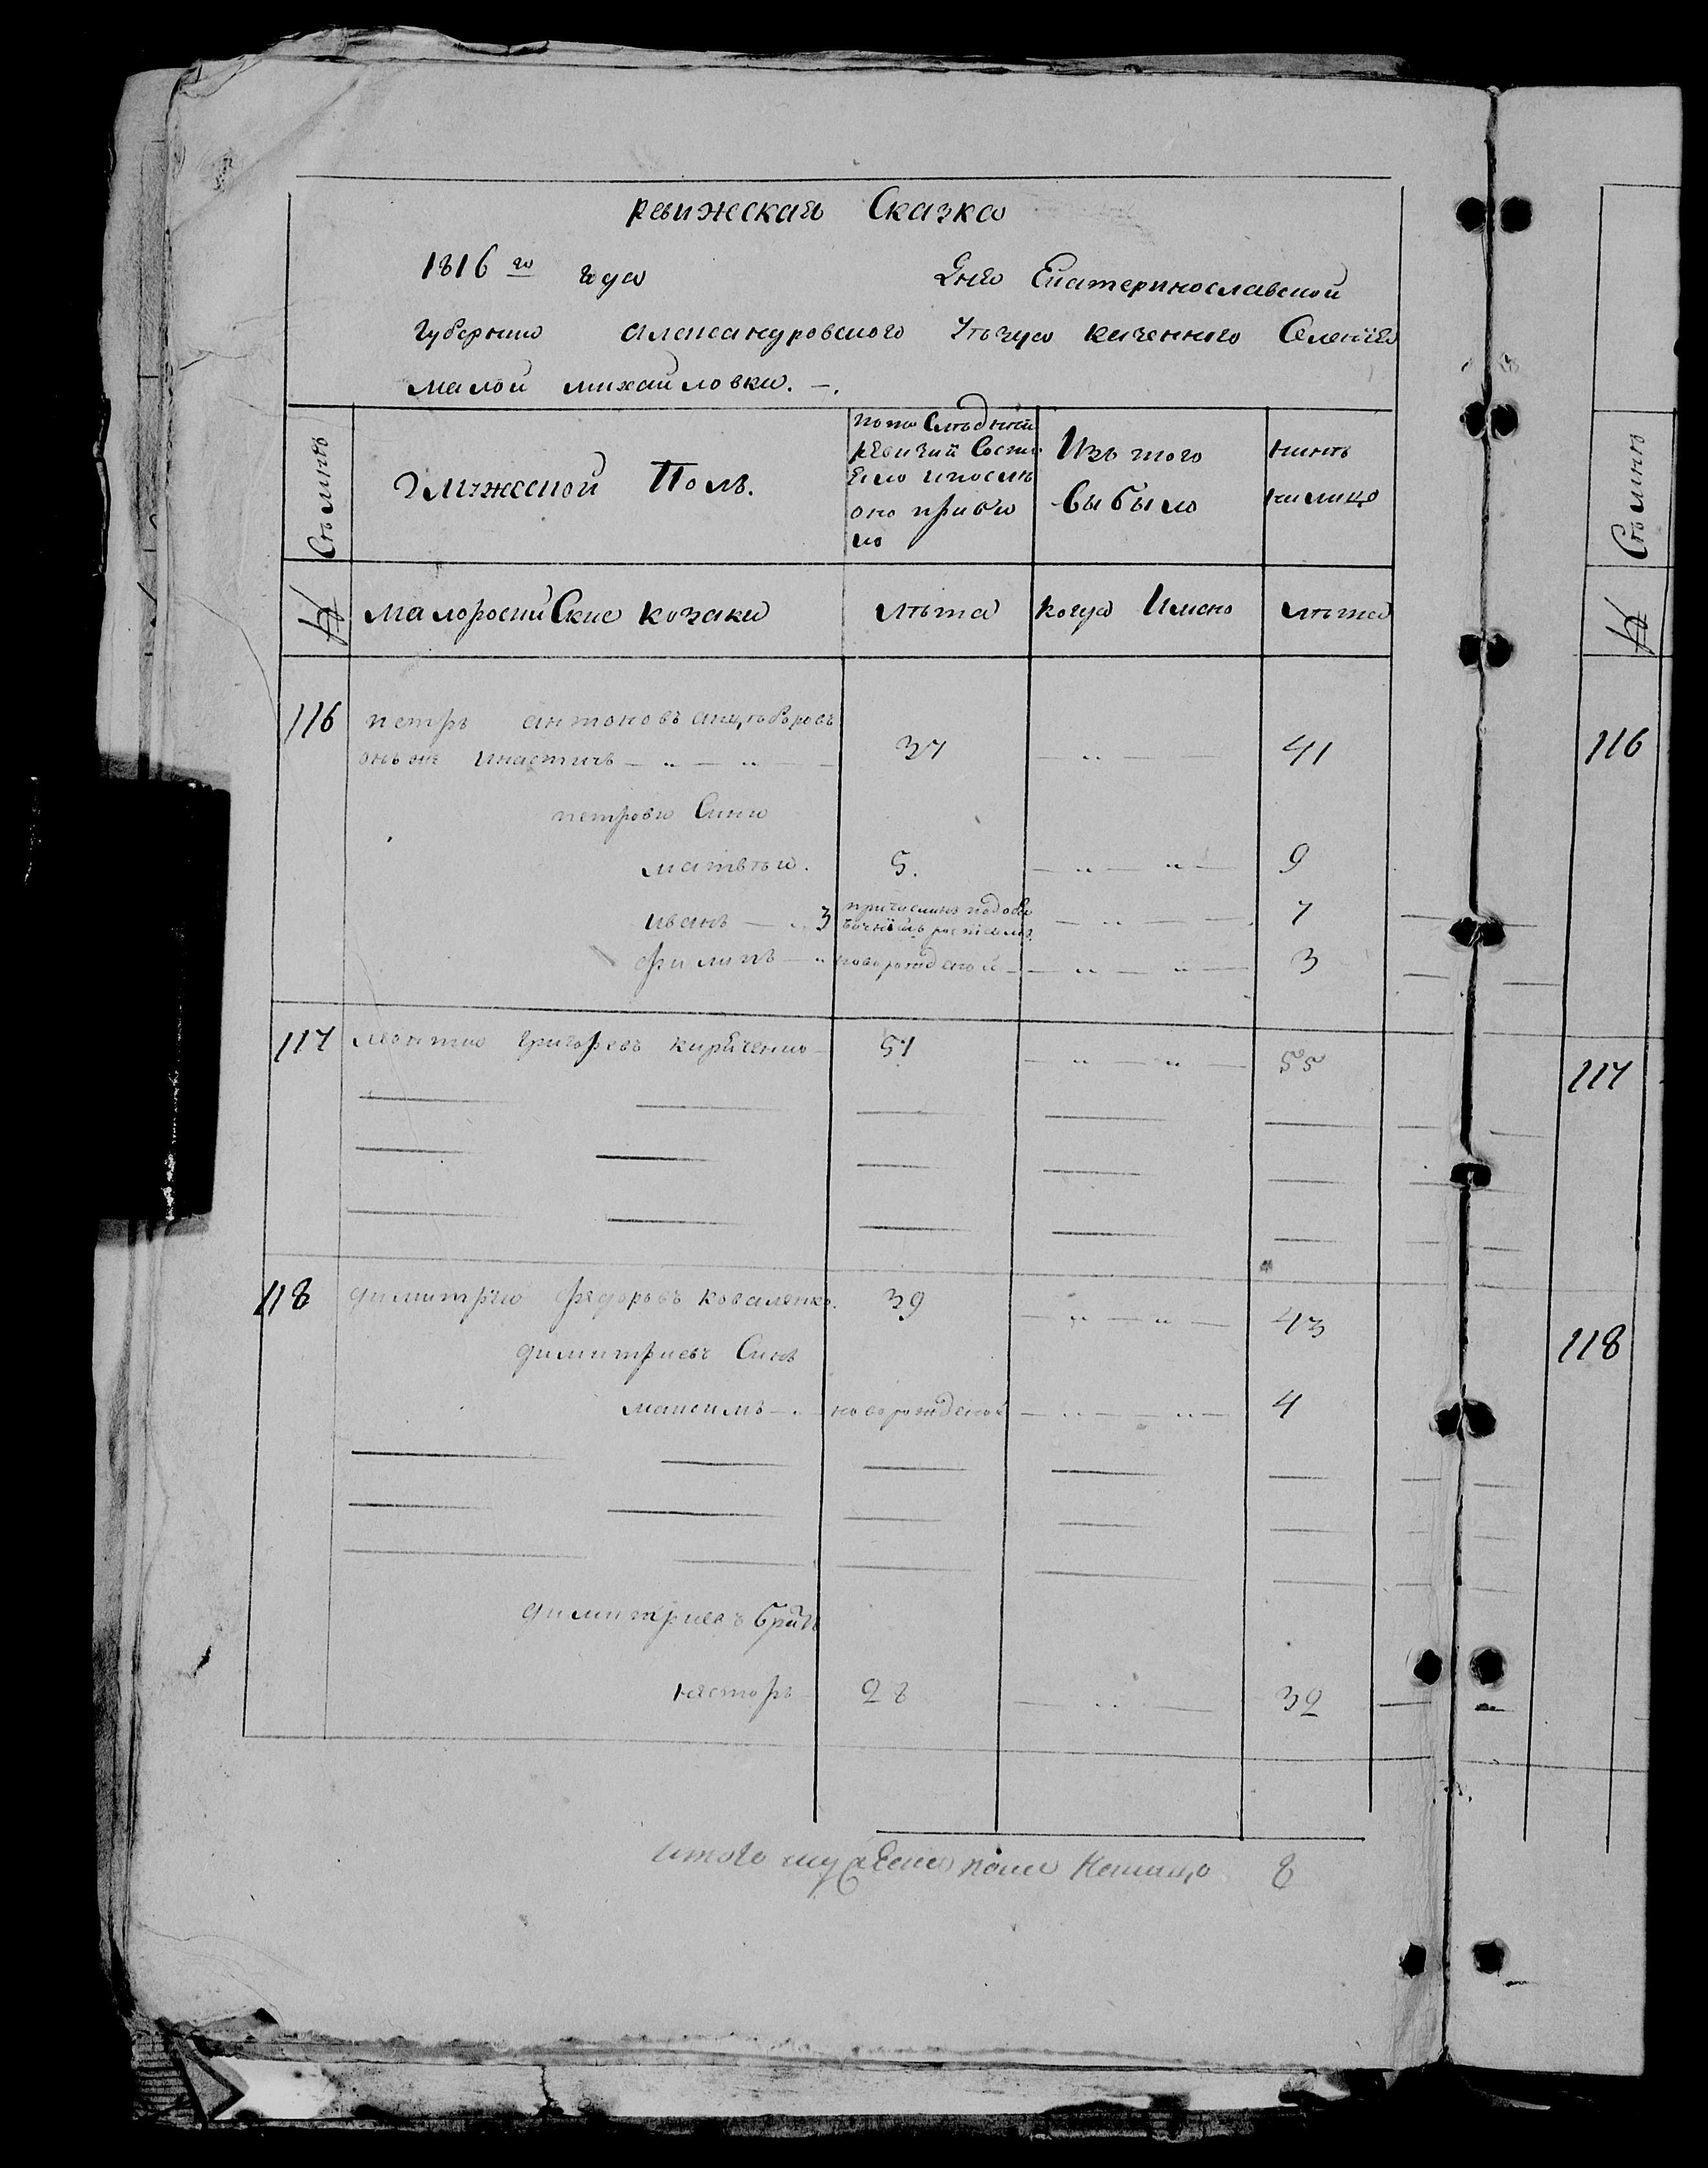 ревижская Сказка
1816 го года Дня Екатеринославской
Губернии Александровского Уѣзда казенного Селенiя
малой михайловки. —.
Мужеской Полъ.
По по Слѣдней ревизiй Состояло и послѣ оно прибыло
Изъ того выбыло
нынѣ на лицо
Семьи
№ малоросийСкие козаки лѣта когда Имено лѣта
116 петръ антоновъ
онъ же 37 41
петрови Сини
матвѣй. 5. 9
иванъ 3 причисленъ 7
филипъ новорожденой 3
117 леонтий григорьевъ кириченко 51 55
118 димитрiй федоровъ коваленко. 39 43
димитриевъ Синъ
максимъ новорожденой 4
димитриевъ братъ
несторъ 28 32
итого мужеска пола Налицо 8
Семьи
№
116
117
118